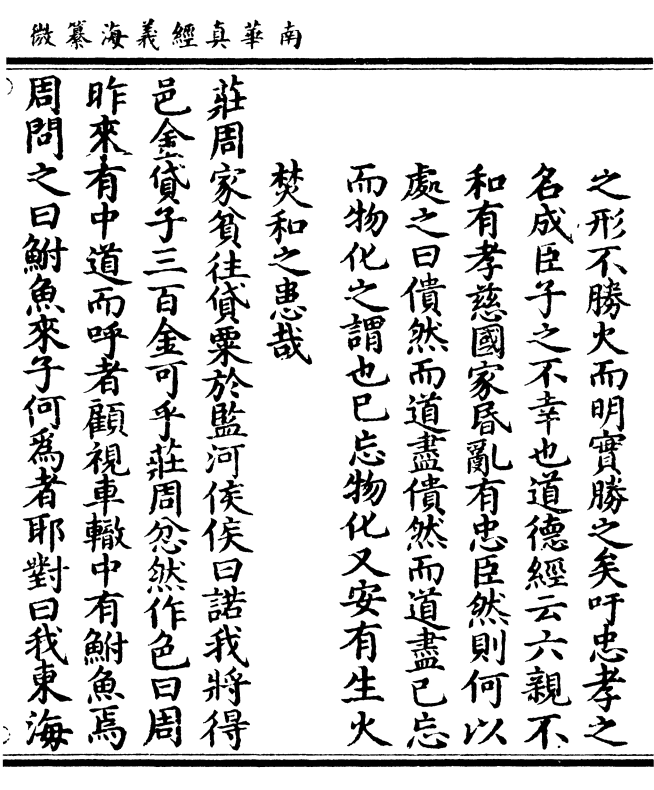 南華真經義海纂微
之形不勝火而明實勝之矣吁忠孝之
名成臣子之不幸也道德經云六親不
和有孝慈國家昏亂有忠臣然則何以
處之曰僓然而道盡僓然而道盡己忘
而物化之謂也已忘物化又安有生火
焚和之患哉
莊周家貧往貸粟於監河侯侯曰諾我將得
邑金貸子三百金可乎莊周忿然作色曰周
昨來有中道而呼者顧視車轍中有鮒魚焉
周問之曰鮒魚來子何為者耶對曰我東海